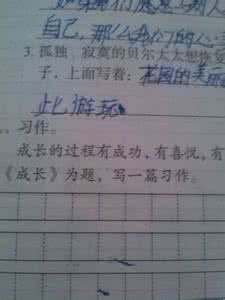 自己,那么我们的公
3. 孤独 寂寞的贝尔太太想恢复
子,上面写着:花园的美丽
此游玩
习作。
成长的过程有成功、有喜悦,有
《成长》为题,写一篇习作。